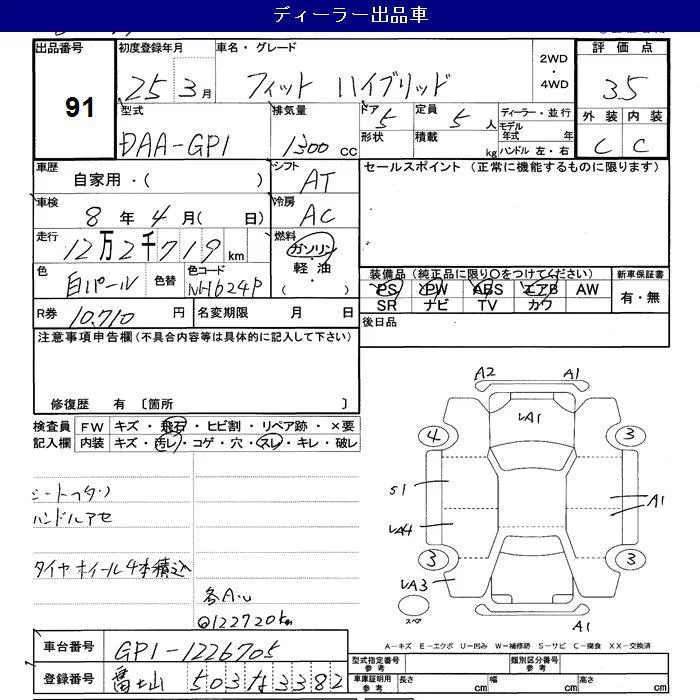 ディーラー出品車
出品番号 91
初度登録年月 25 3月
車名・グレード フィット ハイブリッド
2WD・4WD
評価点 3.5
外装 C 内装 C
型式 DAA-GP1
排気量 1300 cc
ドア 5 形状
定員 5人 積載 kg
ディーラー・並行
モデル年式 年
ハンドル 左・右
車歴 自家用・( )
シフト AT
セールスポイント (正常に機能するものに限ります)
車検 8年 4月( 日)
冷房 AC
走行 12万2千719 km
燃料 ガソリン・軽油・( )
色 白パール 色替
色コード NH624P
装備品 (純正品に限り○をつけてください)
PS PW ABS エアB AW
SR ナビ TV カワ
新車保証書 有・無
R券 10,710 円
名変期限 月 日
後日品
注意事項申告欄 (不具合内容等は具体的に記入して下さい)
修復歴 有 〔箇所 〕
検査員記入欄
FW キズ・飛石・ヒビ割・リペア跡・×要
内装 キズ・汚レ・コゲ・穴・スレ・キレ・破レ
ハンドルアセ
タイヤホイール4本積込
@122720km
A2 A1
A1
4 3
S1 A1
A4
3 3
A3
スペア
A1
A-キズ E-エクボ U-凹み W-補修跡 S-サビ C-腐食 XX-交換済
車台番号 GP1-1226705
登録番号 富士山 503 3382
型式指定番号 参考
類別区分番号 参考
車庫証明用 参考 長さ cm 幅 cm 高さ cm